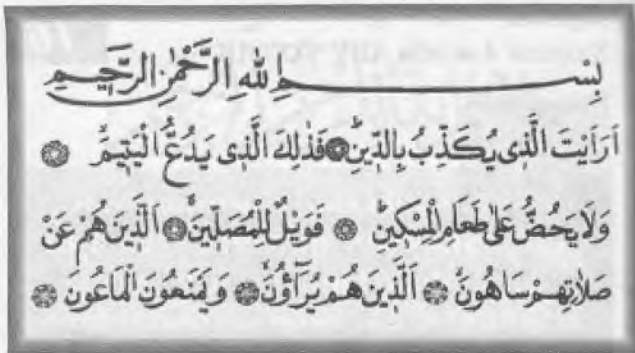 بِسْمِ اللهِ الرَّحْمٰنِ الرَّحِيمِ
اَرَاَيْتَ الَّذِى يُكَذِّبُ بِالدِّينِۜ ۞ فَذٰلِكَ الَّذِى يَدُعُّ الْيَتِيمَۙ ۞
وَلَا يَحُضُّ عَلٰى طَعَامِ الْمِسْكِينِۜ ۞ فَوَيْلٌ لِلْمُصَلِّينَۙ ۞ اَلَّذِينَ هُمْ عَنْ
صَلَاتِهِمْ سَاهُونَۙ ۞ اَلَّذِينَ هُمْ يُرَٓاؤُ۫نَۙ ۞ وَيَمْنَعُونَ الْمَاعُونَ ۞